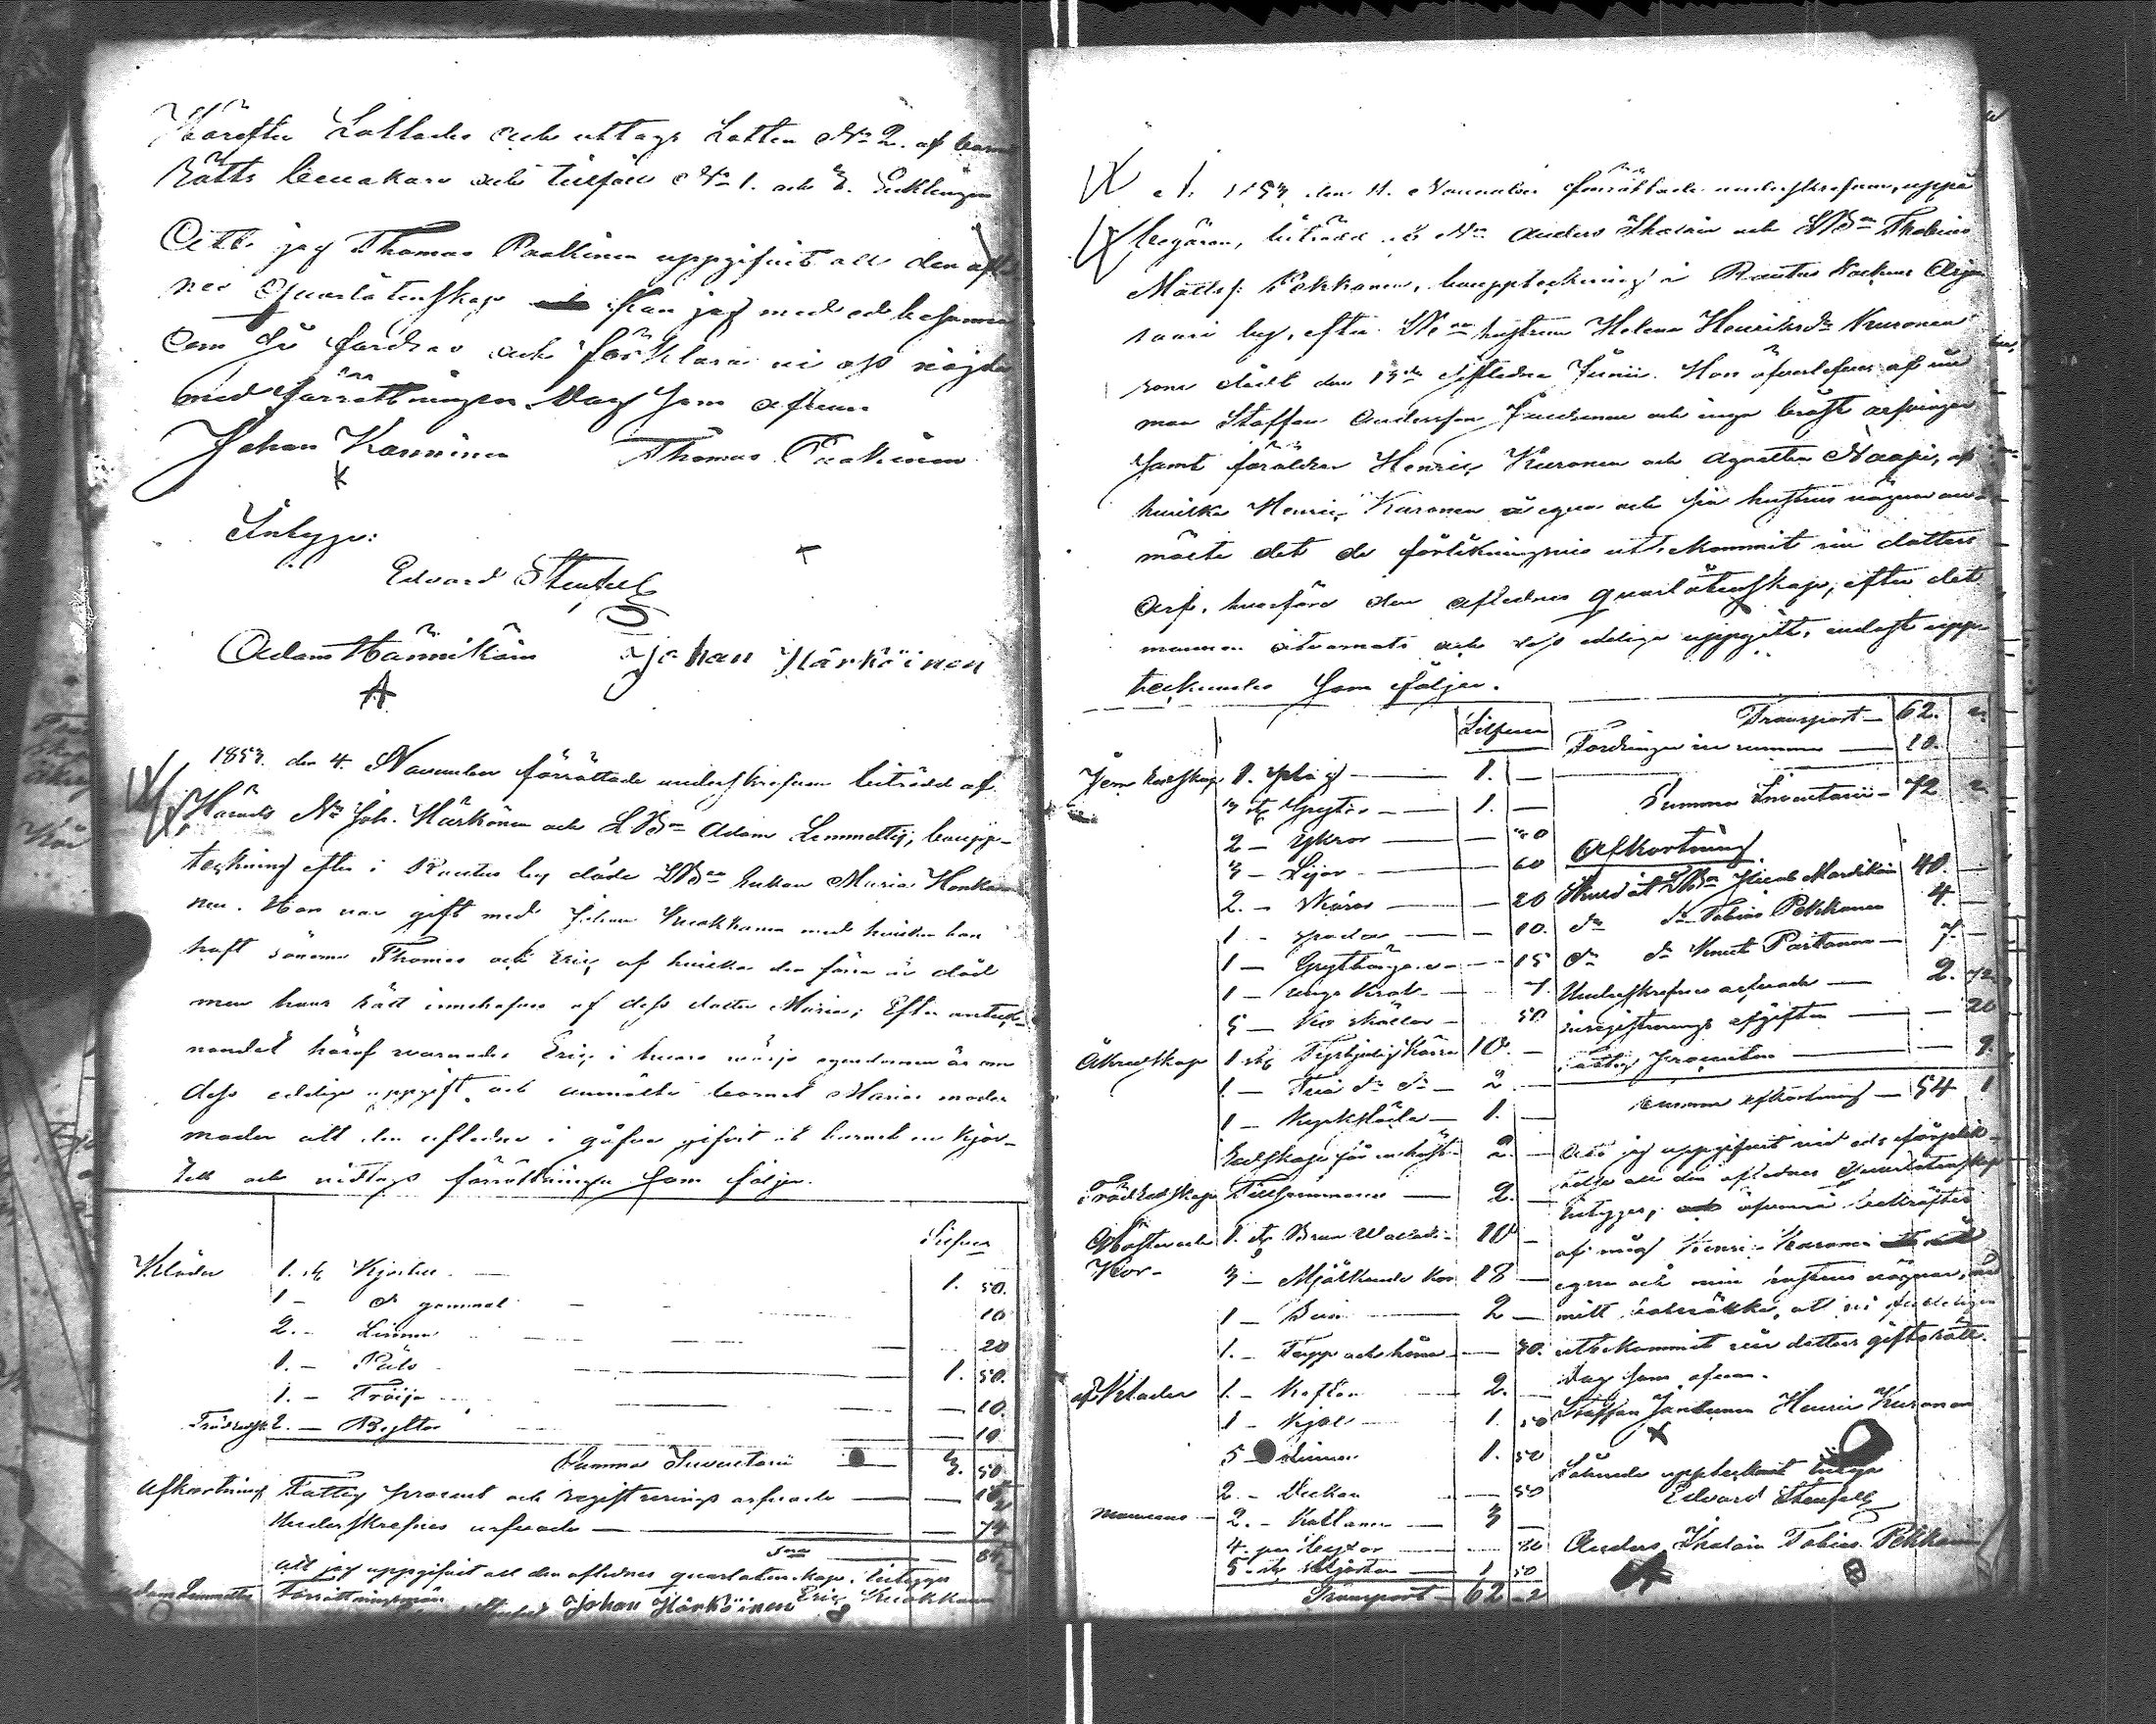 Härefter Lottades och uttogs Lotten No 2. af barnet
Rätts bevakare och tillföll No 1. och 3. Enklingen
Att jag Thomas Paakinen uppgifvit all den afled
nes Quarlåtenskap kan jag med ed besanna
om så fordras och förklara vi oss nöjda
med förrättningen. Dag som ofvan
Johan Kanninen Thomas Paakinen
Intyga:
Edvard Stenfell
Adam Hännikäin Johan Härköinen
1853. den 4. November förrättade underskrefven biträdd af
Härads No Joh. Härkönen och LBn Adam Lemmetty, boupp-
teckning efter i Rautus by döde LBn Enkan Maria Honka
nen. Hon var gift med Johan Kuokkanen med hvilken hon
haft sönerne Thomas och Eric, af hvilka den förra är död
men hans rätt innehafves af dess dotter Maria; Efter anteck-
nandet häraf varnades Eric i hvars värjo egendomen är om
dess edeliga uppgift och anmälte barnet Marias moder
moder att den aflidne i gåfva gifvit åt barnet en kjor-
tell och vidtogs förrättningen som följer.
Silfver
Kläder 1. st. Kjortel 1. 50.
1 - do gammal 10
2. - Linnen 20
1. - Päls 1. 50.
1. - Tröija 10.
Trädredsk. 2. - Byttor 10
Summa Inventarii 3. 50
Afkortning Fattig procent och registrerings arfvode
Underskrefnes arfvode 74
Sma
att jag uppgifvit all den aflidnes quarlåtenskap, betygar
Adam Lemmetty Förrättningsmän Johan Härköinen Eric Kuokkanen
År 1853 den 11. November förrättade underskrefven, uppå
begäran, biträdd af No Anders Ikaläin och LBn Thobias
Mattss: Pekkanen, bouppteckning i Rautus Socken
saari by, efter LBn hustrun Helena Henriksdr Kuronen
som dödt den 13de sistledne Junii. Hon öfverlefves af sin
man Staffan Andersson Jändenen och inga bröst arfvingar
samt föräldrar Henric Kuronen och Agnetta Naapi, af
hvilka Henric Kuronen å egna och sin hustrus vägnar an-
mälte det de förlikningsvis utbekommit sin dotters
arf, hvarföre den aflednes quarlåtenskap, efter det
mannen åtvarnats och dess edeliga uppgift, endast upp-
tecknades som följer.
Silfver
Jern redskap 1. plog 1. -
3 st. Grytor 1. -
2 - Yxor - 40
3 - Lijor - 60
2. - Skäror - 20
1 - spade - 10.
1 - Grythänga - 15
1 - ungs krat - 7.
5 - Ko skällor - 50.
Åkredskap 1. st. Fyrhjulig Kärra 10. -
1. - Två do do 2. -
1 - Kyrksläda 1. -
Redskap för en häst 2. -
Trädredskap Tillsammans 2. -
Hästar och 1. st. Brun Wallach 10 -
Kor - 3 - Mjölkande Kor 18 -
1 - 2 -
1. - Tupp och höna - 30.
af Kläder 1. - Koftan 2. -
1 - Kjol 1. 50
5 - Linnen 1. 50
2. - Duckar - 50
Mannens 2. - Kaftaner 3 -
4. par byxor
5. st. Skjortor 1 50
Transport - 62 - 2
Transport - 62. 2.
Fordringar 10.
Summa Inventarii - 72 2.
Afkortning
Skuld åt LBn Jacob Mordikäin 40. -
do do Tobias Pekkanen 4. -
do do Knut Partanen 7. -
Underskrefnes arfvode 2. 72
inregistrerings afgiften - 20
fattig procenten - 9.
summa afkortning - 54 1
Att jag uppgifvit vid eds förplik-
telse all den aflednes Quarlåtenskap
betygar, äfvensom bekräftas
af mig Henric Kuronen
egna och min hustrus vägnar, med
mitt bomärke, att vi
utbekommit vår dotters giftorätt.
Dag som ofvan.
Staffan Jändenen Henric Kuronen
Sålunda upptecknat intyga
Edvard Stenfell
Anders Ikaläin Tobias Pekkanen